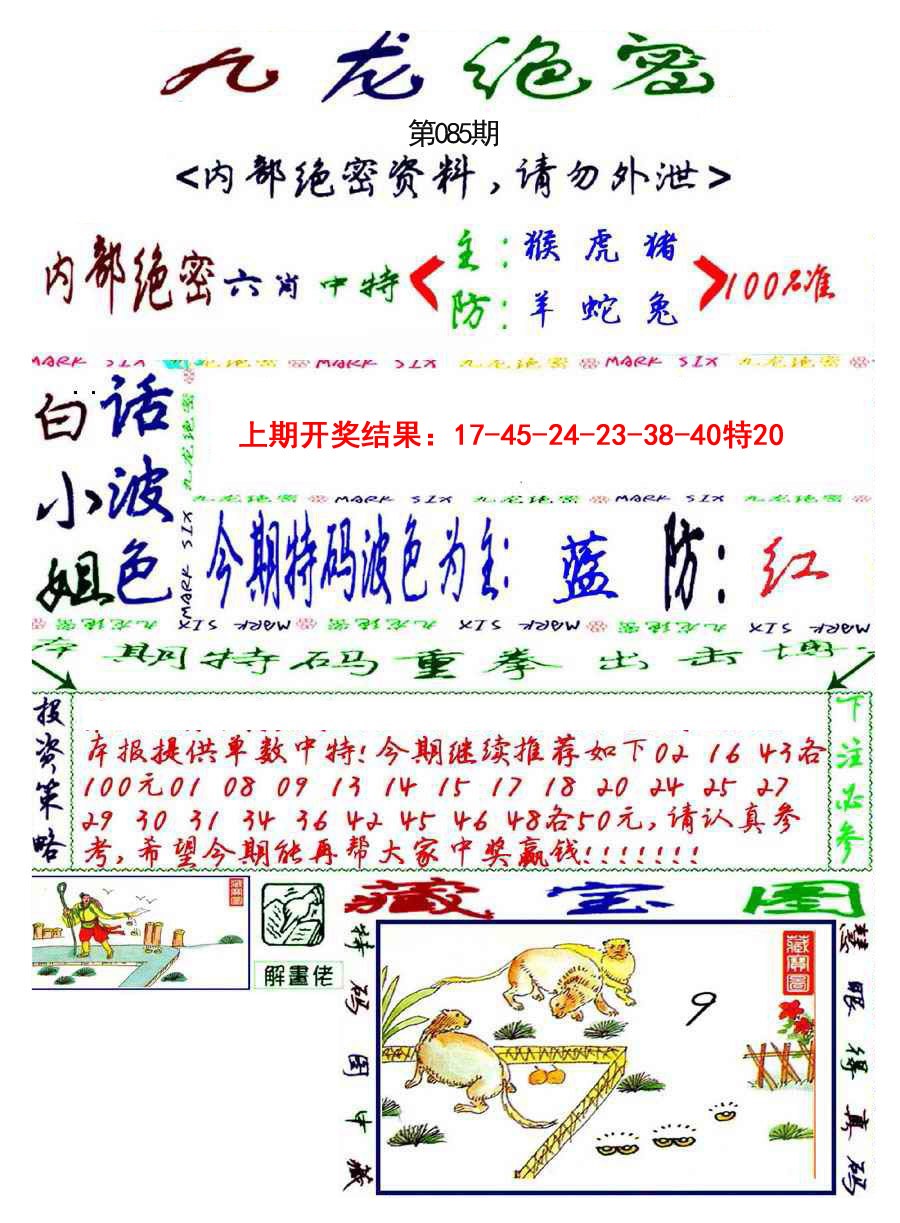 九龙绝密
第085期
<内部绝密资料,请勿外泄>
内部绝密六肖中特
主:猴虎猪
防:羊蛇兔
100%准
MARK SIX 九龙绝密 MARK SIX 九龙绝密 MARK SIX 九龙绝密
白小姐
话波色
九龙绝密
MARK SIX
上期开奖结果：17-45-24-23-38-40特20
九龙绝密 MARK SIX 九龙绝密 MARK SIX 九龙绝密
今期特码波色为主:蓝 防:红
九龙绝密 MARK SIX 九龙绝密 MARK SIX 九龙绝密 MARK SIX
本期特码重拳出击
投资策略
本报提供单数中特!今期继续推荐如下02 16 43各
100元01 08 09 13 14 15 17 18 20 24 25 27
29 30 31 34 36 42 45 46 48各50元,请认真参
考,希望今期能再帮大家中奖赢钱!!!!!!!
下注必参
解畫佬
藏宝图
特码图中藏
9
藏寶圖
慧眼得真码